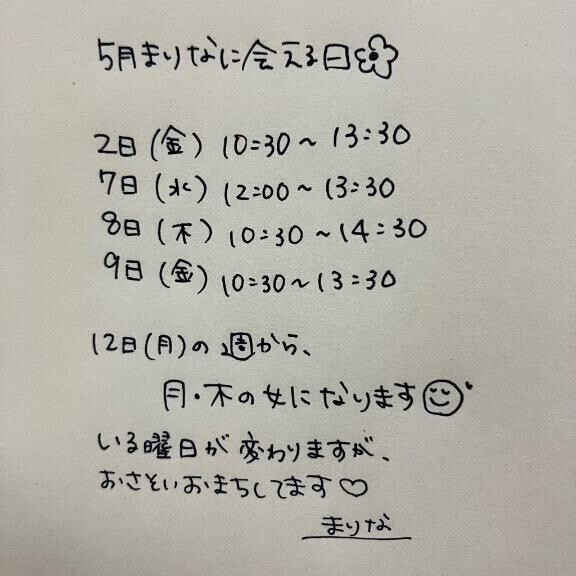 5月まりなに会える日
2日(金) 10:30~13:30
7日(水) 12:00~13:30
8日(木) 10:30~14:30
9日(金) 10:30~13:30
12日(月)の週から、
月・木の女になります
いる曜日が変わりますが、
おさそいおまちしてます♡
まりな